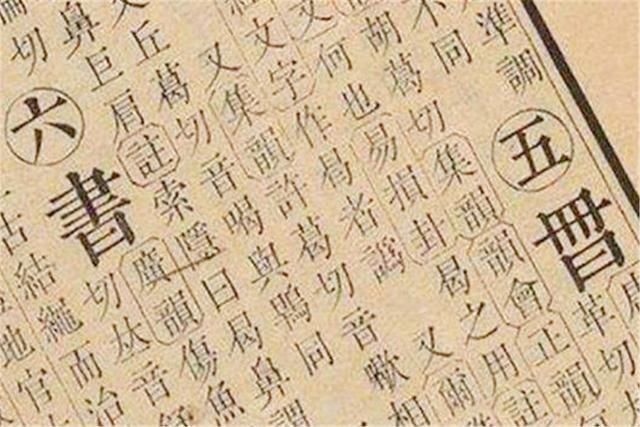 準調
五
革切
不同
胡葛切集韻韻會正韻
何也易損卦曷之用註
文字作曷者譌
又爾
又集韻許葛切音歇相
丘葛切音喝與鶡同
鼻巨肩註索隱曰曷鼻謂
切
六
書
廣韻傷魚
切𠀤音
結繩而治
古
地官